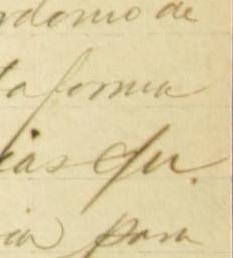 rdomo de
la forma
ias qu.
ia para